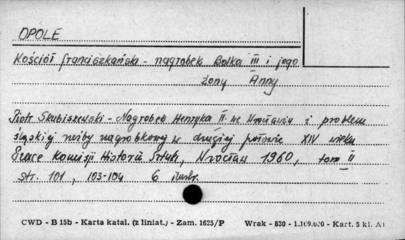 OPOLE
Kościół franciszkański - nagrobek Bolka III i jego
żony Anny
Piotr Skubiszewski - Nagrobek Henryka II. we Wrocławiu i problem
śląskiej rzeźby nagrobkowej w drugiej połowie XIV wieku
Prace Komisji Historii Sztuki, Wrocław 1960, tom II
Str. 101, 103-104 6 ilustr.
CWD - B 15b - Karta katal. (z liniat.) - Zam. 1625/P Wrak - 830 - 1.169.000 - Kart. 5 kl. A1